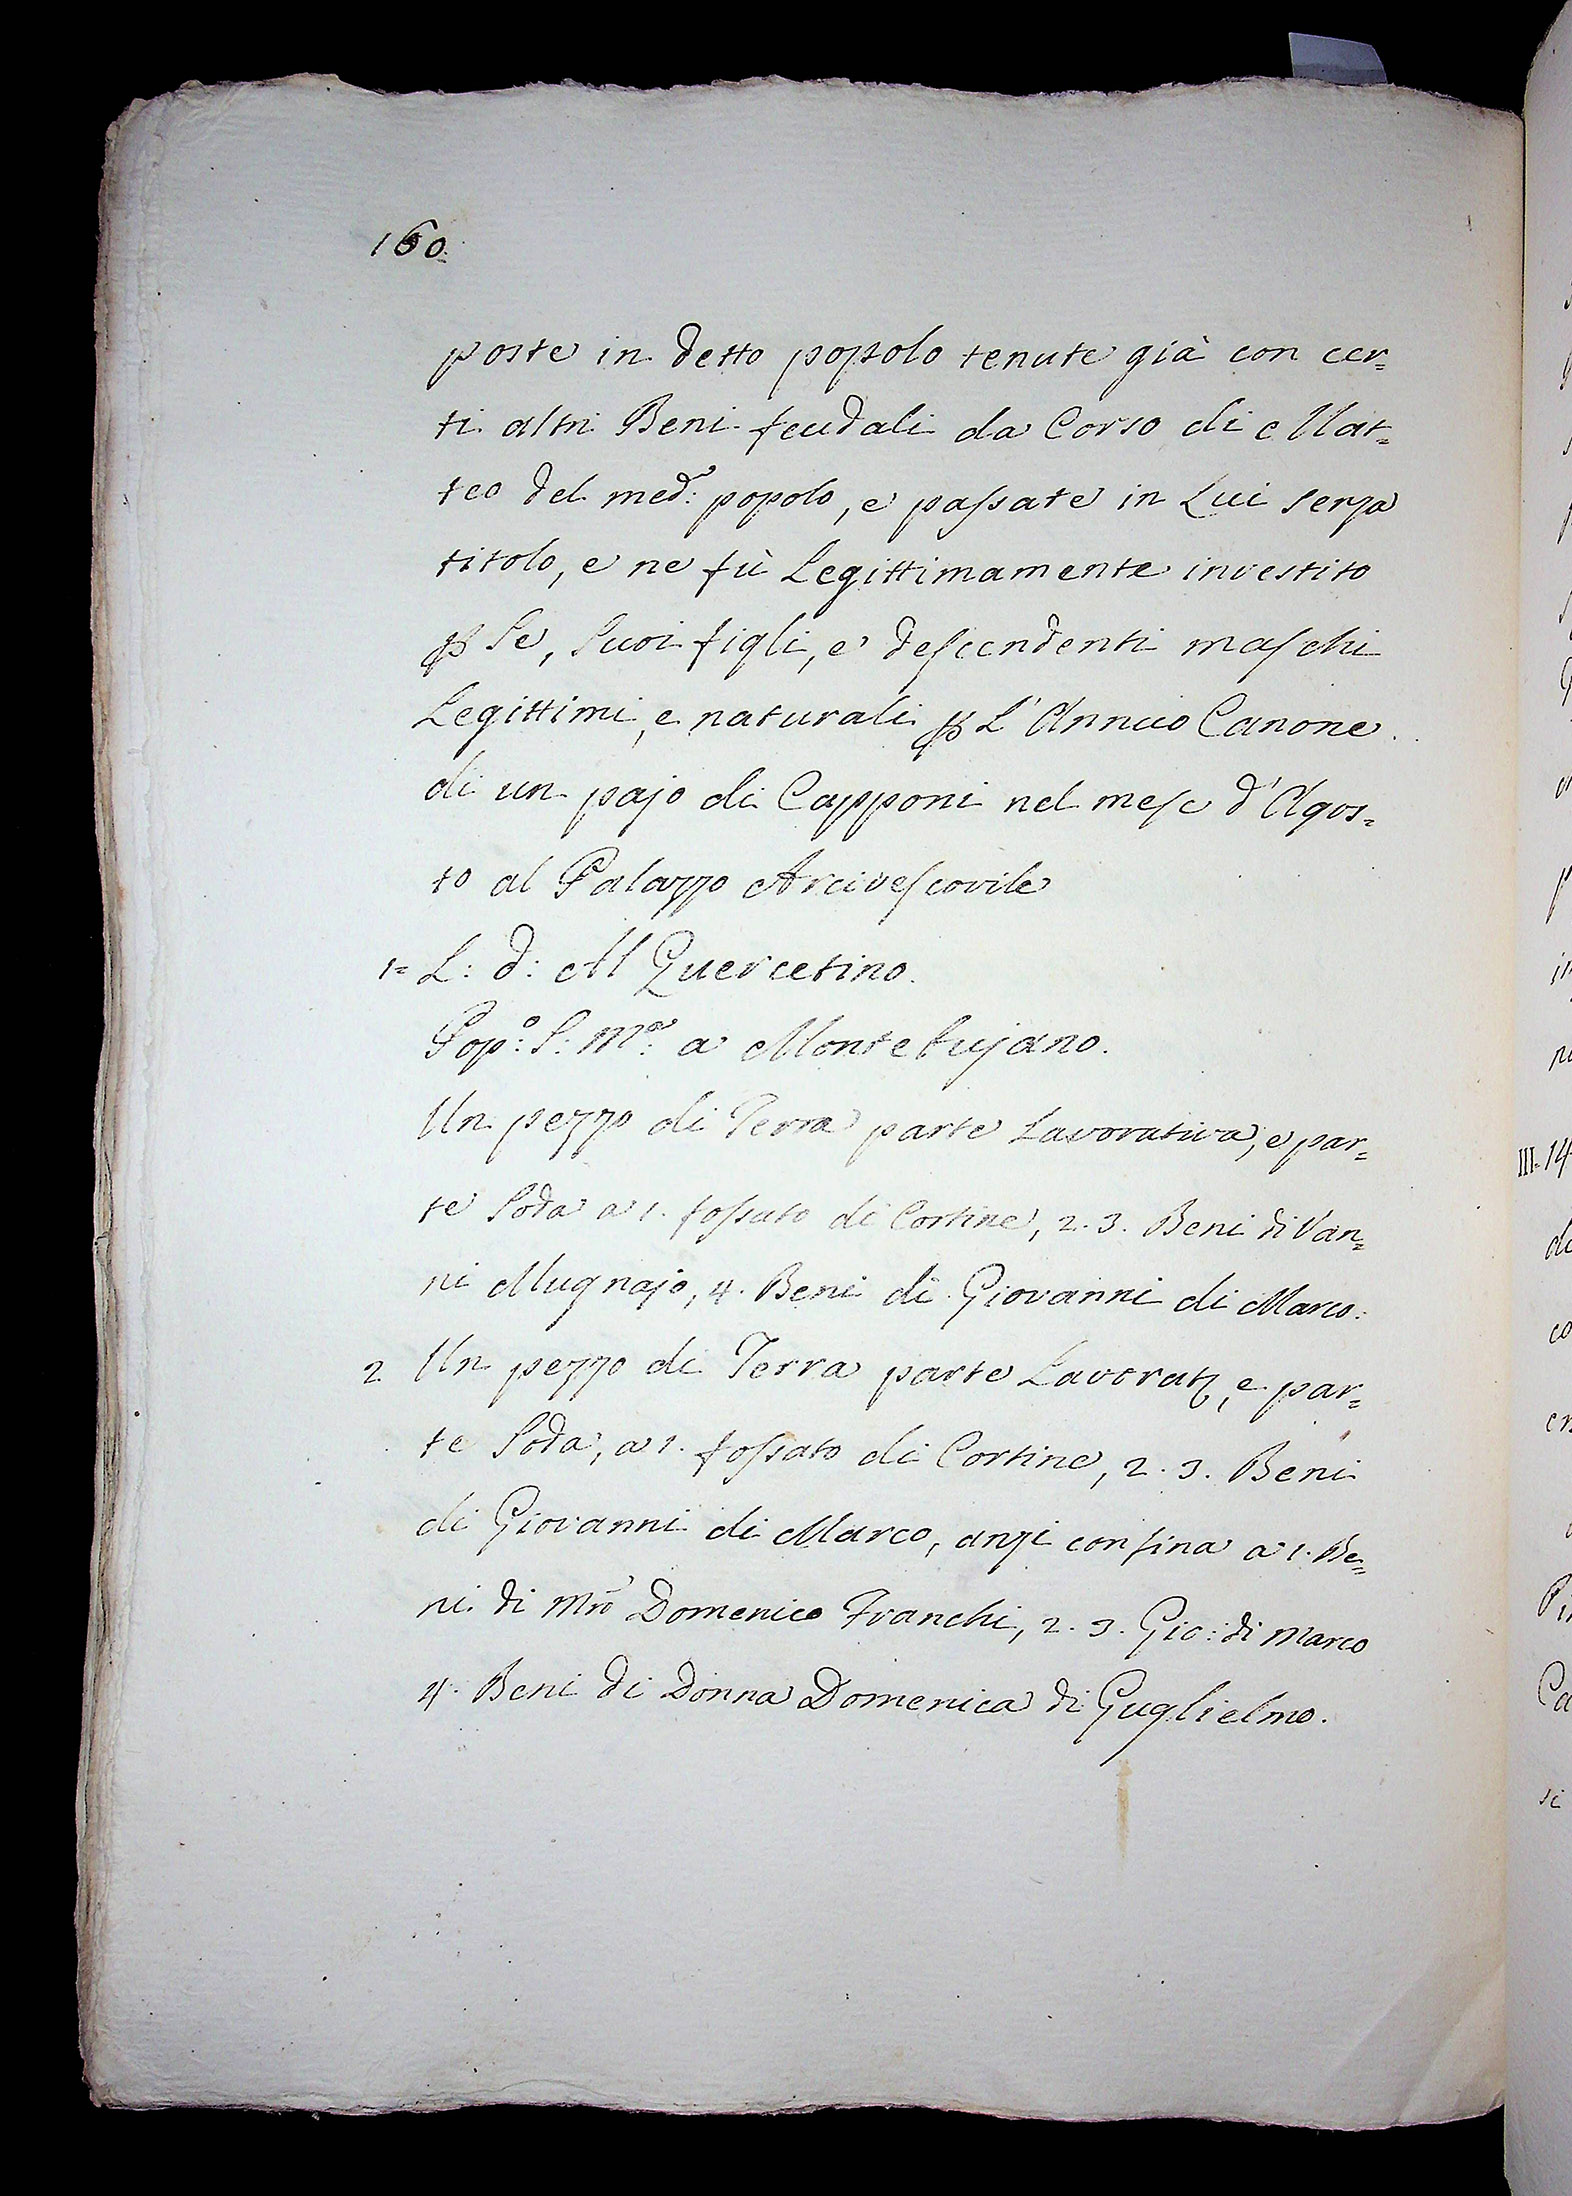 160.
poste in detto popolo tenute già con cer=
ti altri Beni feudali da Corso di Mat=
teo del med:º popolo, e passate in Lui senza
titolo, e ne fù Legittimamente investito
ꝑ Se, Suoi figli, e descendenti maschi
Legittimi, e naturali ꝑ L'Annuo Canone
di un pajo di Capponi nel mese d'Agos=
to al Palazzo Arcivescovile
1= L: d: Al Quercetino.
Pop:º S: M:ª a Montebujano.
Un pezzo di Terra parte Lavorativa, e par=
te Soda a 1. fossato di Cortine, 2. 3. Beni di Van=
ni Mugnajo, 4. Beni di Giovanni di Marco.
2 Un pezzo di Terra parte Lavorat, e par=
te Soda, a 1. fossato di Cortine, 2. 3. Beni
di Giovanni di Marco, anzi confina a 1. Be=
ni di Mrõ Domenico Franchi, 2. 3. Gio: di Marco
4. Beni di Donna Domenica di Guglielmo.
III. 14